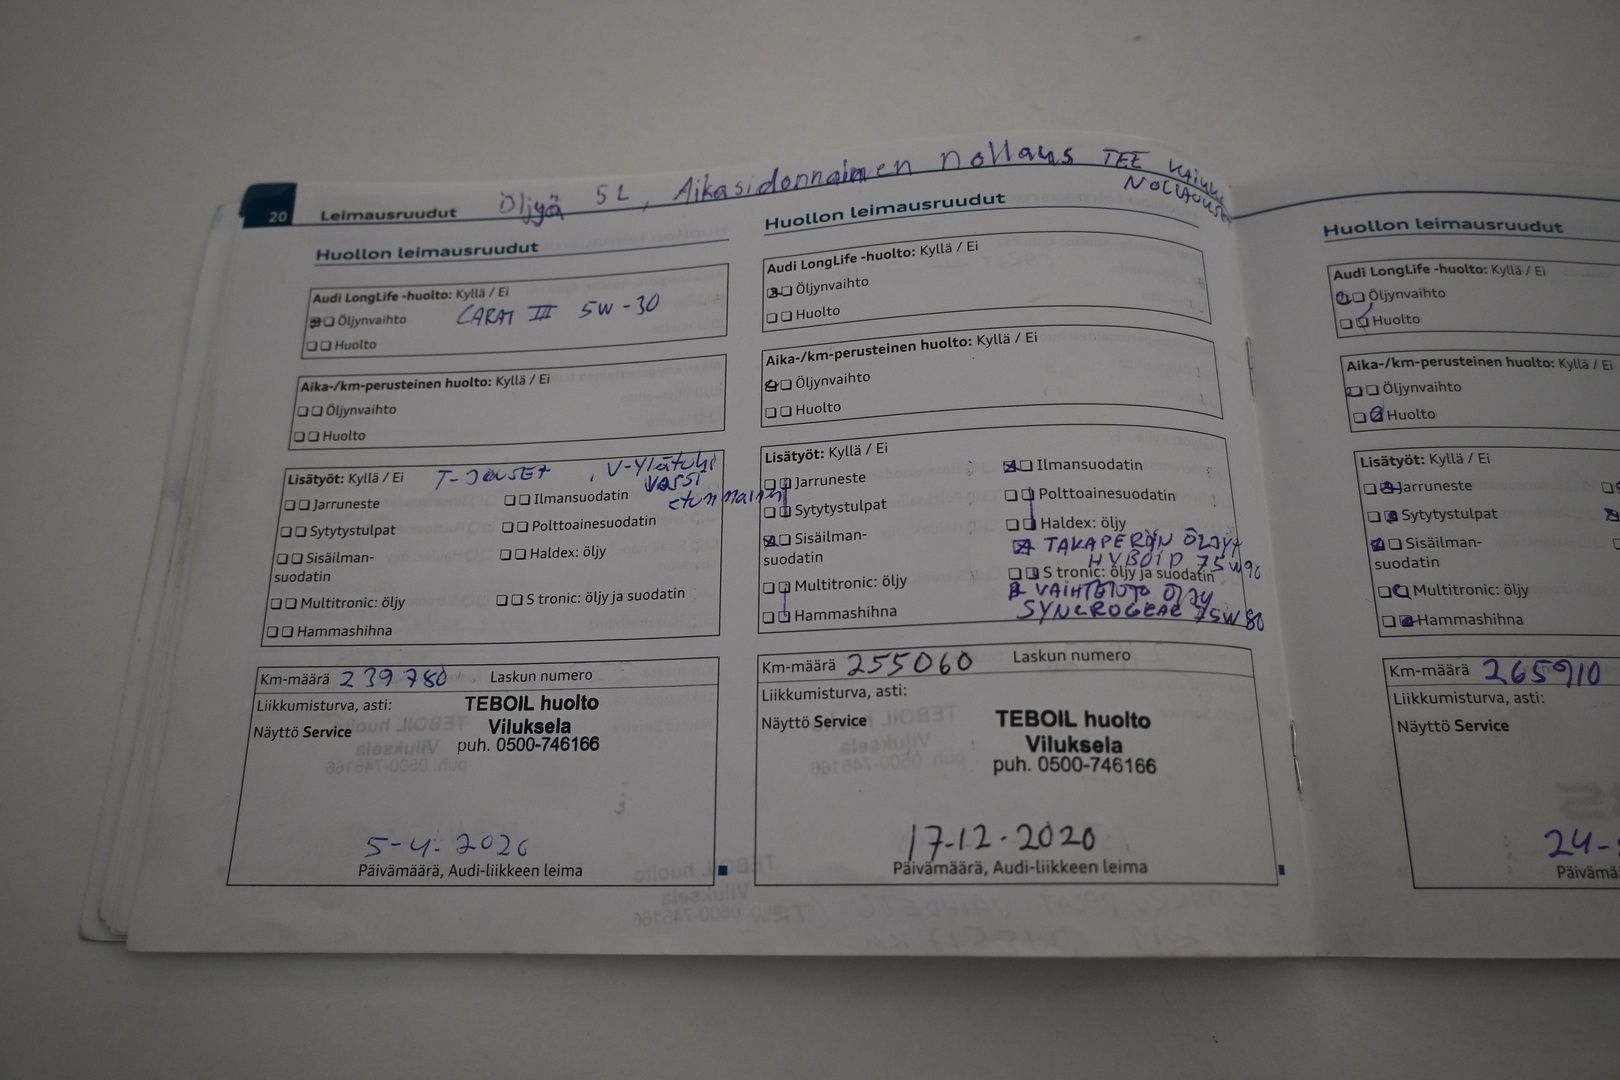 20 Leimausruudut Öljyä 5L, Aikasidonnainen nollaus TEE
Huollon leimausruudut
Audi LongLife -huolto: Kyllä / Ei
Öljynvaihto CARAT III 5W-30
Huolto
Aika-/km-perusteinen huolto: Kyllä / Ei
Öljynvaihto
Huolto
Lisätyöt: Kyllä / Ei
Jarruneste
Ilmansuodatin
Sytytystulpat
Polttoainesuodatin
Sisäilman-
suodatin
Haldex: öljy
Multitronic: öljy
S tronic: öljy ja suodatin
Hammashihna
Km-määrä 239780 Laskun numero
Liikkumisturva, asti:
Näyttö Service
TEBOIL huolto
Viluksela
puh. 0500-746166
5-4-2020
Päivämäärä, Audi-liikkeen leima
Huollon leimausruudut
Audi LongLife -huolto: Kyllä / Ei
Öljynvaihto
Huolto
Aika-/km-perusteinen huolto: Kyllä / Ei
Öljynvaihto
Huolto
Lisätyöt: Kyllä / Ei
Jarruneste
Ilmansuodatin
Sytytystulpat
Polttoainesuodatin
Sisäilman-
suodatin
Haldex: öljy
TAKAPERÄN ÖLJYT
75W90
Multitronic: öljy
S tronic: öljy ja suodatin
ÖLJY
Hammashihna
75W80
Km-määrä 255060 Laskun numero
Liikkumisturva, asti:
Näyttö Service
TEBOIL huolto
Viluksela
puh. 0500-746166
17-12-2020
Päivämäärä, Audi-liikkeen leima
Huollon leimausruudut
Audi LongLife -huolto: Kyllä / Ei
Öljynvaihto
Huolto
Aika-/km-perusteinen huolto: Kyllä / Ei
Öljynvaihto
Huolto
Lisätyöt: Kyllä / Ei
Jarruneste
Sytytystulpat
Sisäilman-
suodatin
Multitronic: öljy
Hammashihna
Km-määrä 265910
Liikkumisturva, asti:
Näyttö Service
24-